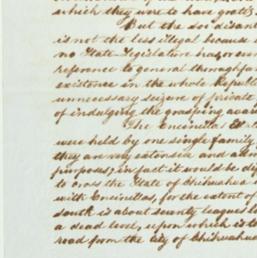 which they were to have gratis
But the soi disant
is not the less illegal because
no State Legislature has, or ever
reference to general thoroughfar
existence in the whole Republi
unnecessary seizure of private
of indulging the grasping avari
The Encinillas
were held by one single family
they are very extensive and
purposes; in fact it would be di
to cross the State of Chihuahua
with Encinillas, for the extent of
south is about seventy leagues
a dead level, upon which is to
road from the City of Chihuahua